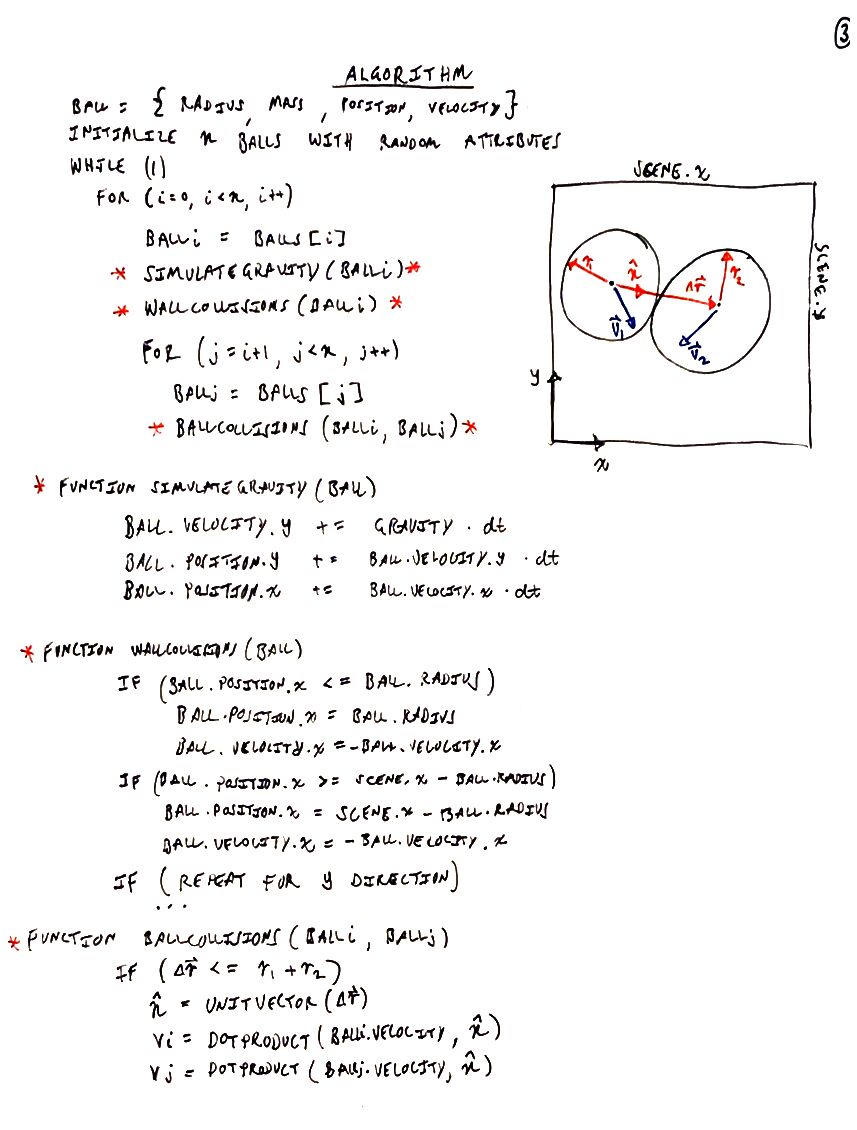 ③
ALGORITHM
BALL = { RADIUS, MASS, POSITION, VELOCITY}
INITIALIZE n BALLS WITH RANDOM ATTRIBUTES
WHILE (1)
FOR (i=0, i<n, i++)
BALLi = BALLS[i]
* SIMULATEGRAVITY(BALLi)*
* WALLCOLLISIONS(BALLi) *
FOR (j=i+1, j<n, j++)
BALLj = BALLS[j]
* BALLCOLLISIONS(BALLi, BALLj)*
SCENE.x
SCENE.y
r₁
n̂
Δr⃗
r₂
v⃗₁
v⃗₂
y
x
* FUNCTION SIMULATEGRAVITY(BALL)
BALL.VELOCITY.y += GRAVITY · dt
BALL.POSITION.y += BALL.VELOCITY.y · dt
BALL.POSITION.x += BALL.VELOCITY.x · dt
* FUNCTION WALLCOLLISIONS(BALL)
IF (BALL.POSITION.x <= BALL.RADIUS)
BALL.POSITION.x = BALL.RADIUS
BALL.VELOCITY.x = -BALL.VELOCITY.x
IF (BALL.POSITION.x >= SCENE.x - BALL.RADIUS)
BALL.POSITION.x = SCENE.x - BALL.RADIUS
BALL.VELOCITY.x = -BALL.VELOCITY.x
IF (REPEAT FOR y DIRECTION)
...
* FUNCTION BALLCOLLISIONS(BALLi, BALLj)
IF (Δr⃗ <= r₁ + r₂)
n̂ = UNITVECTOR(Δr⃗)
vi = DOTPRODUCT(BALLi.VELOCITY, n̂)
vj = DOTPRODUCT(BALLj.VELOCITY, n̂)